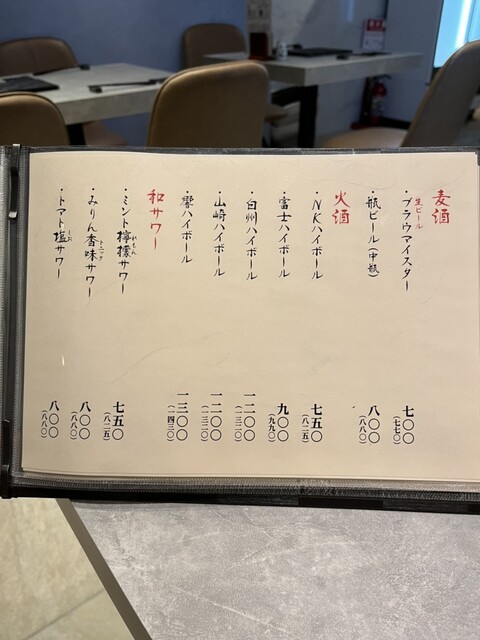 麦酒
生ビール
・ブラウマイスター 七〇〇 (七七〇)
・瓶ビール(中瓶) 八〇〇 (八八〇)
火酒
・NKハイボール 七五〇 (八二五)
・富士ハイボール 九〇〇 (九九〇)
・白州ハイボール 一二〇〇 (一三二〇)
・山崎ハイボール 一二〇〇 (一三二〇)
・響ハイボール 一三〇〇 (一四三〇)
和サワー
・ミント檸檬サワー 七五〇 (八二五)
れもん
・みりん香味サワー 八〇〇 (八八〇)
・トマト塩サワー 八〇〇 (八八〇)
しお